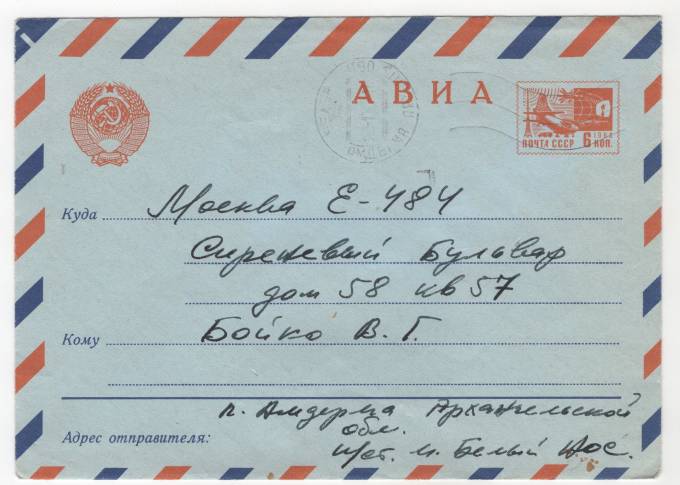 АВИА
1966
ПОЧТА СССР 6 КОП.
Куда Москва Е-484
Сиреневый Бульвар
дом 58 кв 57
Кому Бойко В. Г.
п. Амдерма Архангельской
обл.
Адрес отправителя: п/ст. м. Белый Нос.